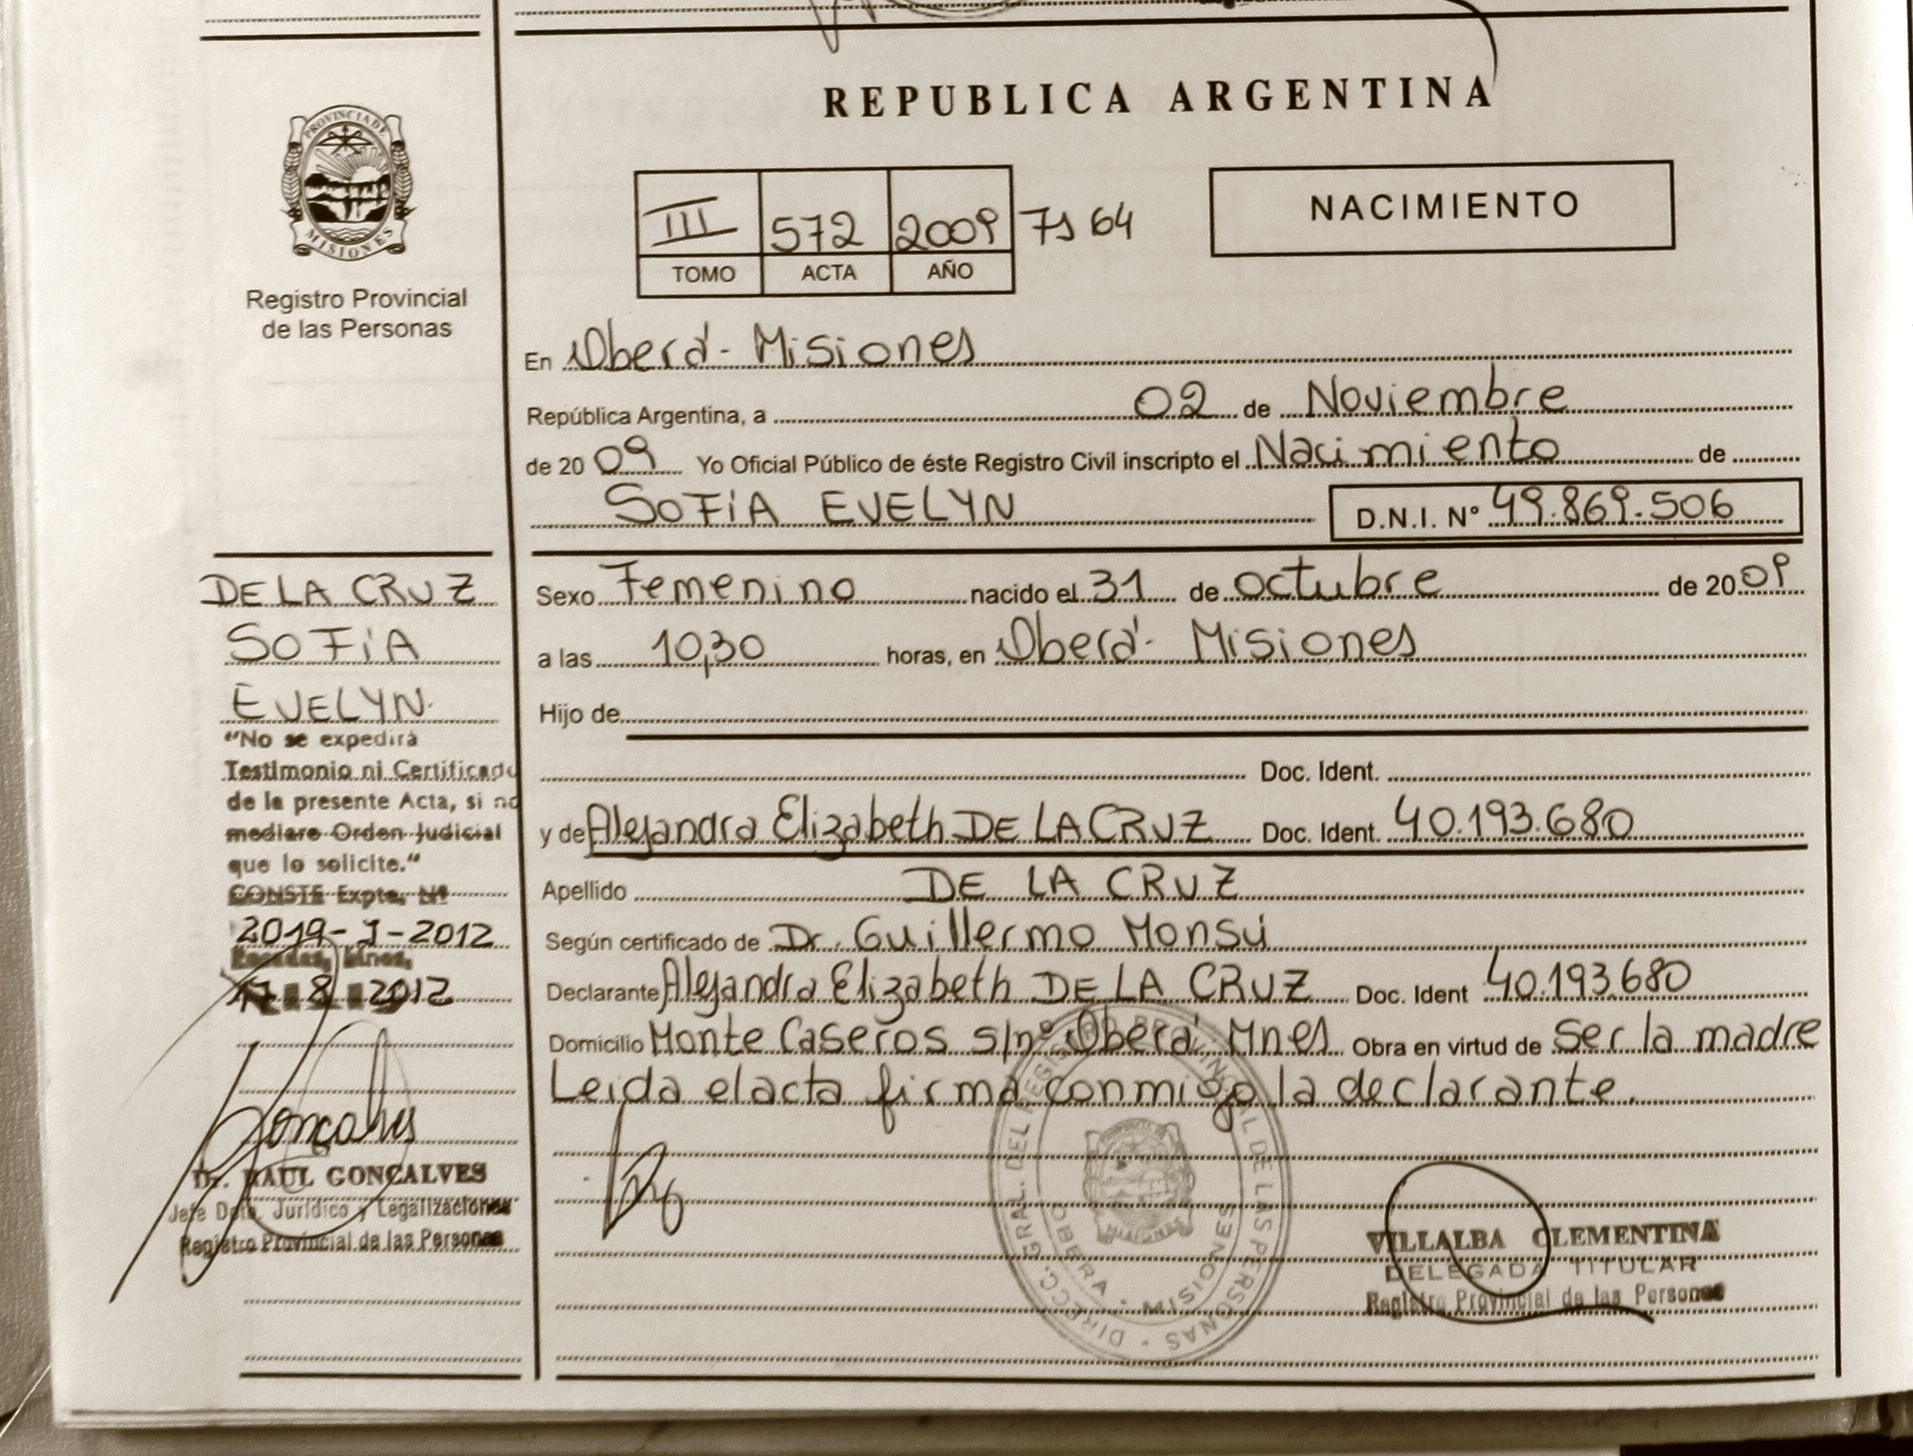 REPUBLICA ARGENTINA
PROVINCIA DE
MISIONES
Registro Provincial
de las Personas
III 572 2009 64
TOMO ACTA AÑO
NACIMIENTO
En Oberá - Misiones
República Argentina, a 02 de Noviembre
de 20 09 Yo Oficial Público de éste Registro Civil inscripto el Nacimiento de
SOFÍA EVELYN D.N.I. N° 49.869.506
DE LA CRUZ
SOFÍA
EVELYN.
"No se expedirá
Testimonio ni Certificado
de la presente Acta, si no
mediare Orden Judicial
que lo solicite."
CONSTE Expte. Nº
2019-J-2012
Posadas, Mnes.
17 8 2012
Goncalves
Dr. RAUL GONCALVES
Jefe Dpto. Jurídico y Legalizaciones
Registro Provincial de las Personas
Sexo Femenino nacido el 31 de octubre de 20 09
a las 10,30 horas, en Oberá - Misiones
Hijo de
Doc. Ident.
y de Alejandra Elizabeth DE LA CRUZ Doc. Ident. 40.193.680
Apellido DE LA CRUZ
Según certificado de Dr. Guillermo Monsú
Declarante Alejandra Elizabeth DE LA CRUZ Doc. Ident 40.193.680
Domicilio Monte Caseros s/nº Oberá Mnes Obra en virtud de ser la madre
Leida el acta firma conmigo la declarante.
DIRECC. GRAL. DEL REGISTRO PROVINCIAL DE LAS PERSONAS -
OBERA - MISIONES
VILLALBA CLEMENTINA
DELEGADA TITULAR
Registro Provincial de las Personas